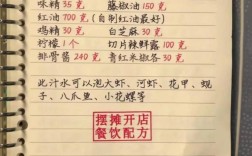 味精 35 克 藤椒油 150 克
红油 700 克 (自制红油最好)
鸡精 30 克 白芝麻 30 克
柠檬 1 个 切片辣鲜露 100 克
排骨酱 240 克 青红米椒各 30 克
此汁水可以泡大虾、河虾、花甲、蚬
子、八爪鱼、小花螺等
摆摊开店
餐饮配方